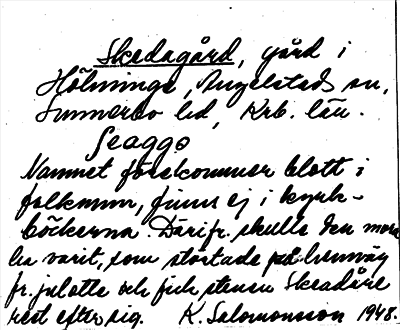 Skedagård, gård i
Hölminge, Angelstads sn,
Sunnerbo hd, Krb. län.
Seaggo
Namnet förekommer blott i
folkmun, finns ej i kyrk-
böckerna. Därifr. skulle den man
ha varit, som störtade på hemväg
fr. julotta och fick stenen Skeadåre
rest efter sig. K. Salomonsson 1948.